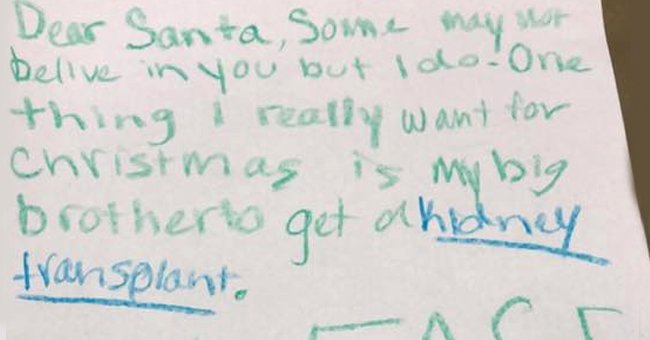 Dear Santa, Some may not
belive in you but I do. One
thing I really want for
christmas is my big
brother to get a kidney
transplant.